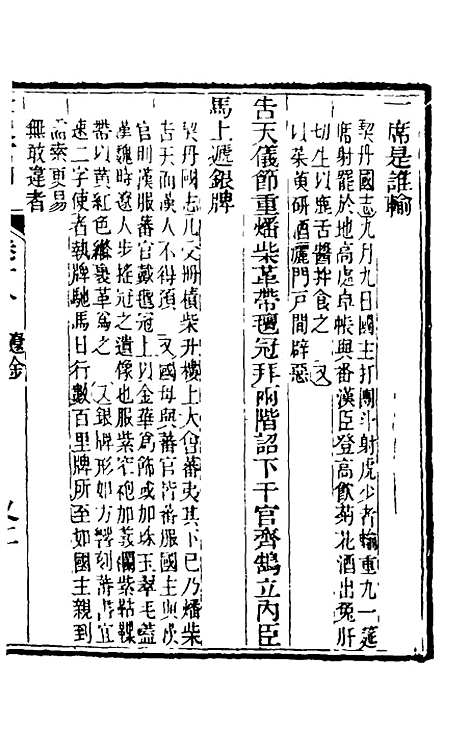 一席是誰輸
契丹國志九月九日國主打團斗射虎少者輸重九一筵
席射罷於地高處卓帳與番漢臣登高飲菊花酒出兔肝
切生以鹿舌醬拌食之 又
以茱萸研酒灑門戶間辟惡
告天儀節重燔柴革帶氊冠拜兩階詔下千官齊鵠立內臣
馬上遞銀牌
契丹國志凡受冊積柴升樓上大會蕃夷其下已乃燔柴
告天而漢人不得預 又國母與蕃官皆番服國主與漢
官則漢服蕃官戴氊冠上以金華為飾或加珠玉翠毛蓋
漢魏時遼人步搖冠之遺像也服紫窄袍加義襴紫䩞鞢
帶以黃紅色絛裹革為之 又銀牌形如方響刻蕃書宜
速二字使者執牌馳馬日行數百里牌所至如國主親到
需索更易
無敢違者
遼金